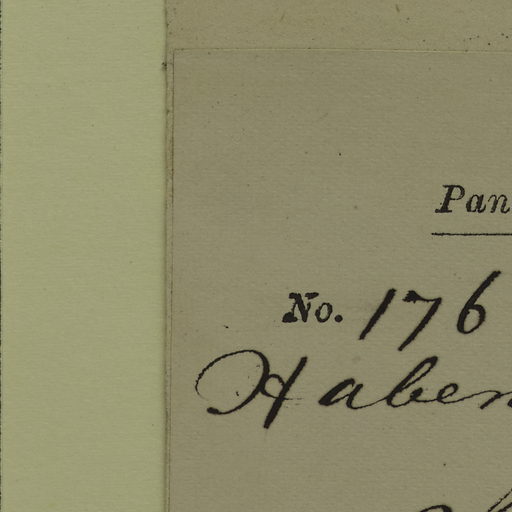 Pan
No. 176
Haben